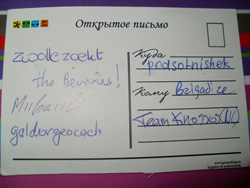 Открытое письмо
zwollezoekt
the Bennies!
galdorgeocach
Куда
podsolnishek
Кому Brigad ice
Team